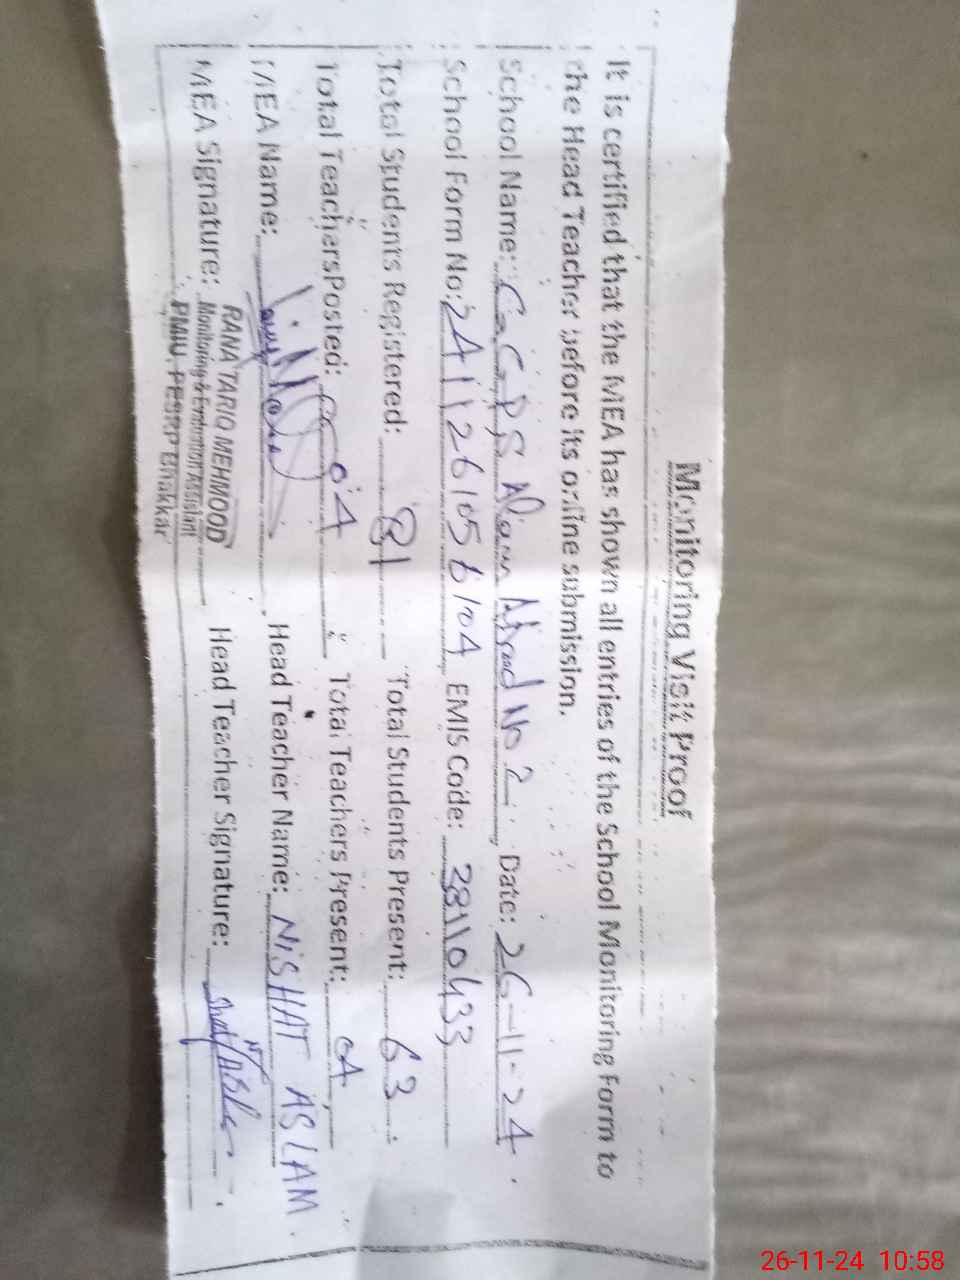 Monitoring Visit Proof
It is certified that the MEA has shown all entries of the School Monitoring Form to
the Head Teacher before its online submission.
School Name: G.G.P.S Alam Abad No 2 Date: 26-11-24
School Form No: 241126105 6104 EMIS Code: 38110433
Total Students Registered: 81 Total Students Present: 63
Total Teachers Posted: 04 Total Teachers Present: 04
MEA Name: Head Teacher Name: NISHAT ASLAM
MEA Signature: Head Teacher Signature:
RANA TARIQ MEHMOOD
Monitoring & Evaluation Assistant
PMIU, PESRP Bhakkar
26-11-24 10:58